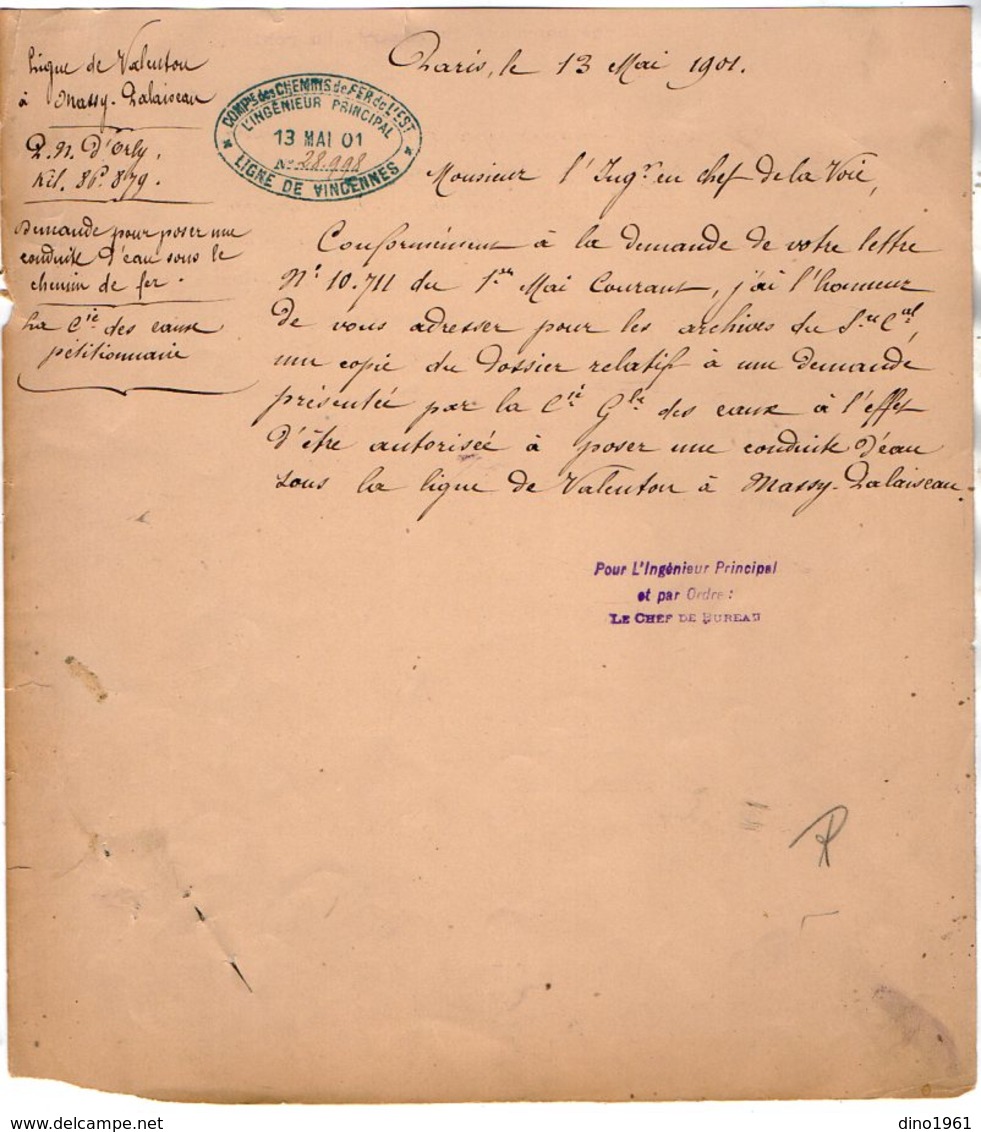 Ligne de Valenton
à Massy-Palaiseau
P.N. d'Orly.
Kil. 8P. 879.
Demande pour poser une
conduite d'eau sous le
chemin de fer.
La Cie des eaux
pétitionnaire
COMPIE des CHEMINS de FER de L'EST
L'INGÉNIEUR PRINCIPAL
13 MAI 01
No 28.998
LIGNE DE VINCENNES
Paris, le 13 Mai 1901.
Monsieur l'Ingr en chef de la Voie,
Conformément à la demande de votre lettre
No 10.711 du 1er Mai Courant, j'ai l'honneur
de vous adresser pour les archives du Sce Cal,
une copie du dossier relatif à une demande
présentée par la Cie Gle des eaux à l'effet
d'être autorisée à poser une conduite d'eau
sous la ligne de Valenton à Massy-Palaiseau.
Pour L'Ingénieur Principal
et par Ordre :
LE CHEF DE BUREAU
dino1961